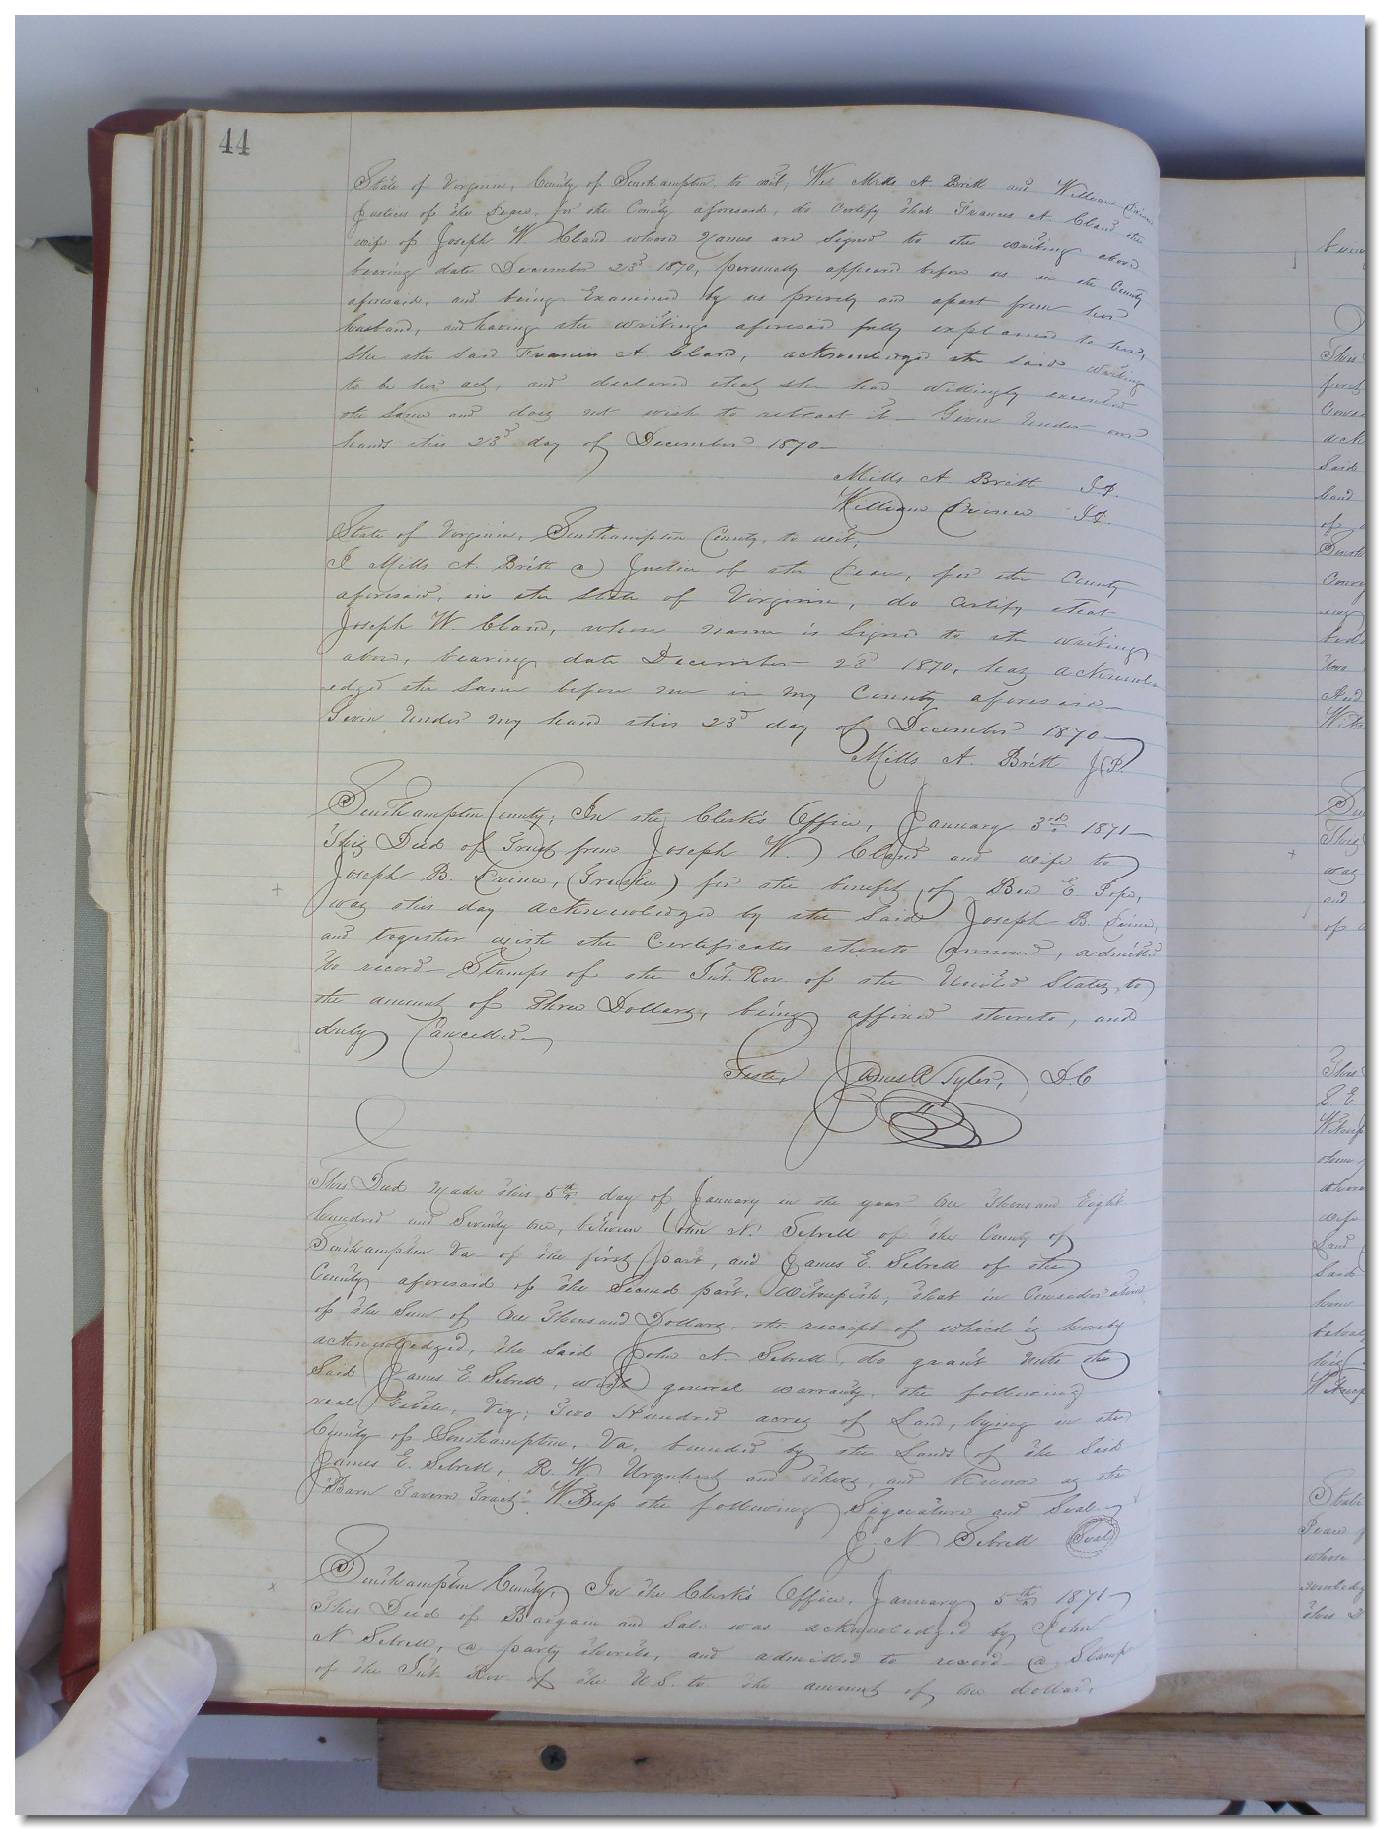 44
State of Virginia, County of Southampton to wit, We Mills A. Britt and William
Justices of the Peace, for the County aforesaid, do certify that Frances A. Cland the
wife of Joseph W. Cland whose names are signed to the writing above
bearing date December 23d 1870, personally appeared before us in the County
aforesaid, and being Examined by us privily and apart from her
husband, and having the writing aforesaid fully explained to her,
She the said Frances A Cland, acknowledged the said writing
to be her act, and declared that she had willingly executed
the same and does not wish to retract it. Given under our
hands this 23d day of December 1870—
Mills A Britt J.P.
William J.P.
State of Virginia, Southampton County, to wit,
I Mills A. Britt a Justice of the Peace, for the County
aforesaid, in the State of Virginia, do certify that
Joseph W. Cland, whose name is signed to the writing
above, bearing date December 23d 1870, has acknowl-
edged the same before me in my County aforesaid—
Given under my hand this 23d day of December 1870—
Mills A. Britt J.P.
Southampton County; In the Clerk's Office, January 3rd 1871—
This Deed of Trust from Joseph W. Cland and wife to
Joseph B. (Trustee) for the benefit of Ben E Pope,
was this day acknowledged by the said Joseph B.
and together with the Certificates thereto annexed, admitted
to record— Stamps of the Int. Rev. of the United States, to
the amount of Three Dollars, being affixed thereto, and
duly Cancelled—
Teste, James R Tyler, D.C
This Deed made this 5th day of January in the year One Thousand Eight
hundred and Seventy One, between John N. Sebrell of the County of
Southampton Va of the first part, and James E. Sebrell of the
County aforesaid of the Second part. Witnesseth; that in Consideration
of the Sum of One Thousand Dollars the receipt of which is hereby
acknowledged, the said John N. Sebrell, do grant unto the
Said James E. Sebrell, with general warranty, the following
real Estate, Viz; Two Hundred acres of Land, lying in the
County of Southampton, Va, bounded by the Lands of the Said
James E. Sebrell, R. W. Urquhart and others, and known as the
"Barn Tavern Tract". Witness the following Signature and Seal—
J. N Sebrell Seal
Southampton County, In the Clerk's Office, January 5th 1871—
This Deed of Bargain and Sale was acknowledged by John
N Sebrell, a party thereto, and admitted to record— a Stamp
of the Int. Rev. of the U.S. to the amount of One dollar,